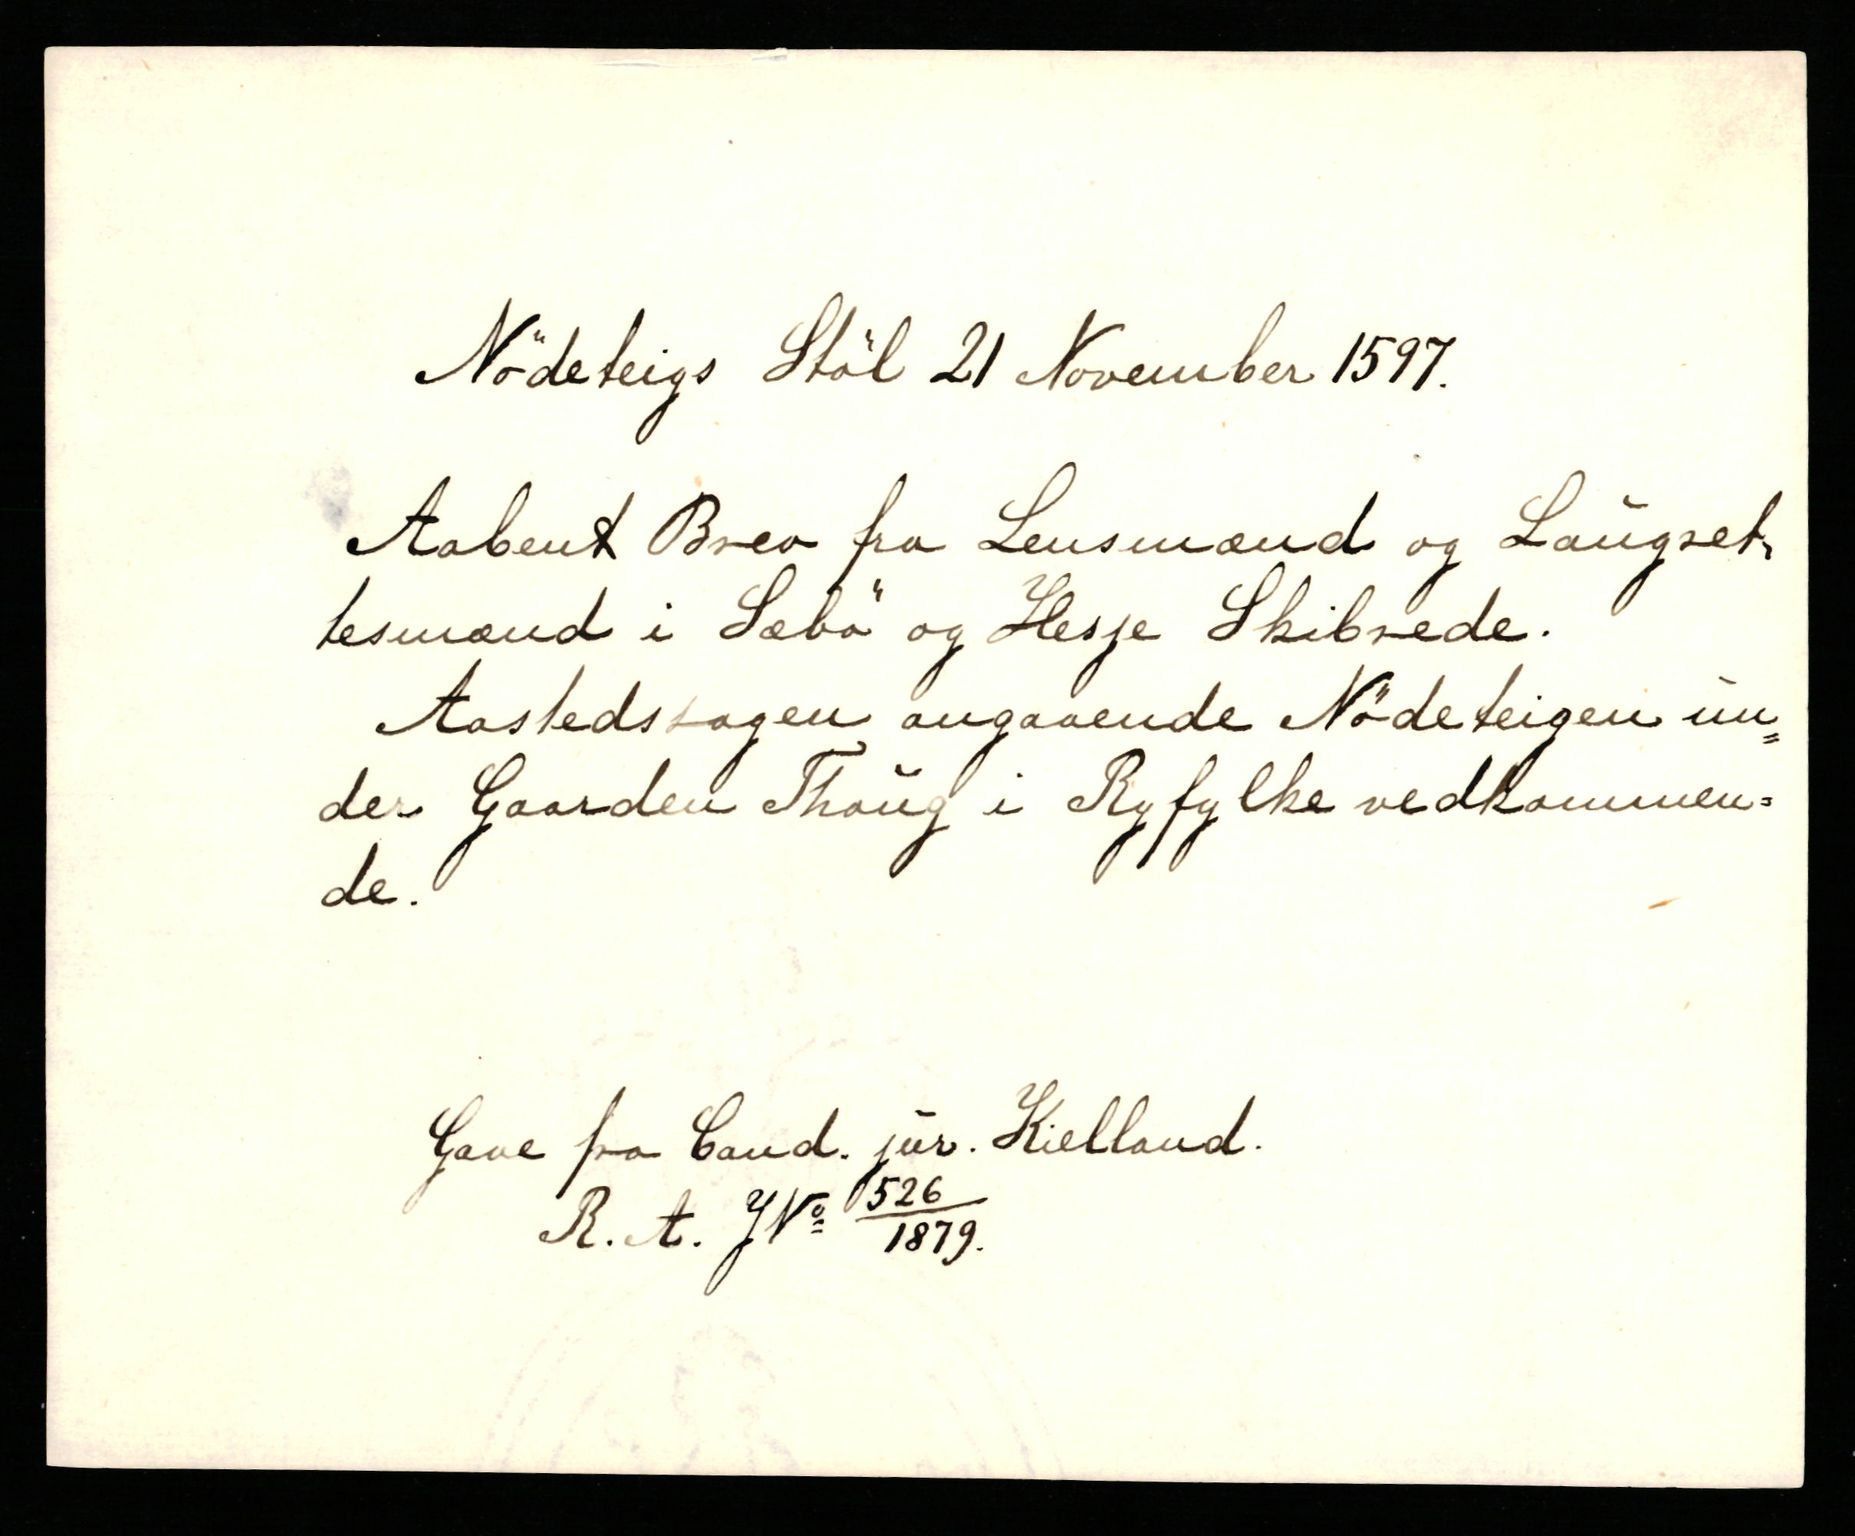 Nödeteigs Stöl 21 November 1597.
Aabent Brev fra Lensmænd og Laugret,
tesmænd i Sæbö og Hesje Skibrede.
Aastedssagen angaaende Nödeteigen un=
der Gaarden Thaug i Ryfylke vedkommen=
de.
Gave fra Cand. jur. Kielland.
R. A. J Nº 526/1879.